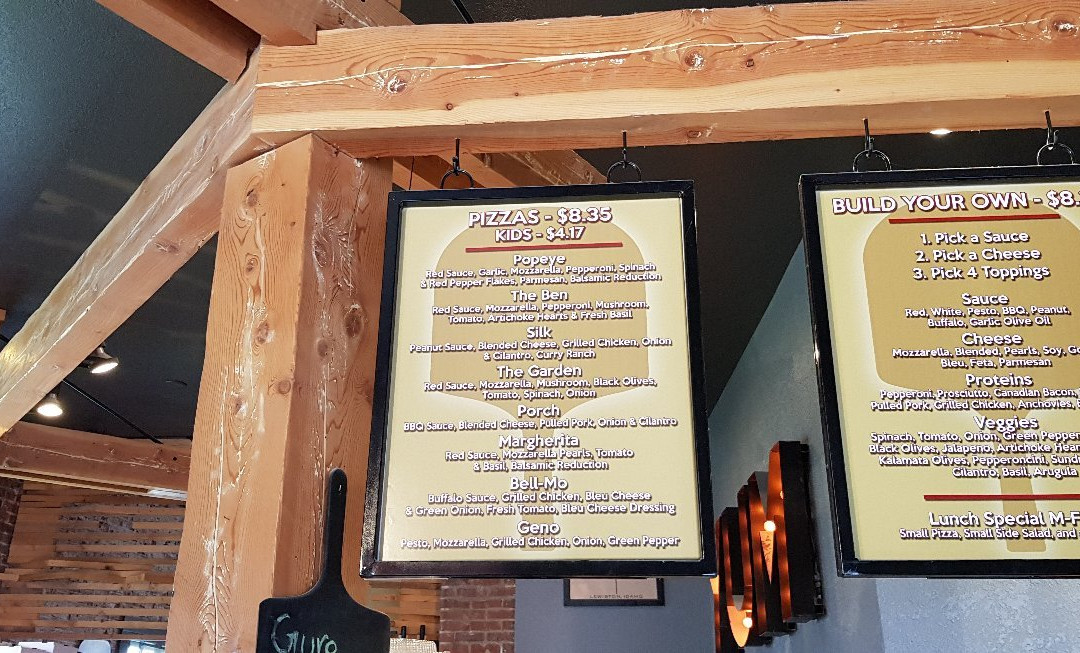 PIZZAS - $8.35
KIDS - $4.17
Popeye
Red Sauce, Garlic, Mozzarella, Pepperoni, Spinach
& Red Pepper Flakes, Parmesan, Balsamic Reduction
The Ben
Red Sauce, Mozzarella, Pepperoni, Mushroom,
Tomato, Artichoke Hearts & Fresh Basil
Silk
Peanut Sauce, Blended Cheese, Grilled Chicken, Onion
& Cilantro, Curry Ranch
The Garden
Red Sauce, Mozzarella, Mushroom, Black Olives,
Tomato, Spinach, Onion
Porch
BBQ Sauce, Blended Cheese, Pulled Pork, Onion & Cilantro
Margherita
Red Sauce, Mozzarella Pearls, Tomato
& Basil, Balsamic Reduction
Bell-Mo
Buffalo Sauce, Grilled Chicken, Bleu Cheese
& Green Onion, Fresh Tomato, Bleu Cheese Dressing
Geno
Pesto, Mozzarella, Grilled Chicken, Onion, Green Pepper
BUILD YOUR OWN - $8.
1. Pick a Sauce
2. Pick a Cheese
3. Pick 4 Toppings
Sauce
Red, White, Pesto, BBQ, Peanut,
Buffalo, Garlic Olive Oil
Cheese
Mozzarella, Blended, Pearls, Soy,
Bleu, Feta, Parmesan
Proteins
Pepperoni, Prosciutto, Canadian Bacon,
Pulled Pork, Grilled Chicken, Anchovies,
Veggies
Spinach, Tomato, Onion, Green Pepper
Black Olives, Jalapeno, Artichoke
Kalamata Olives, Pepperoncini,
Cilantro, Basil, Arugula
Lunch Special M-F
Small Pizza, Small Side Salad, and
LEWISTON, IDAHO
Gyro